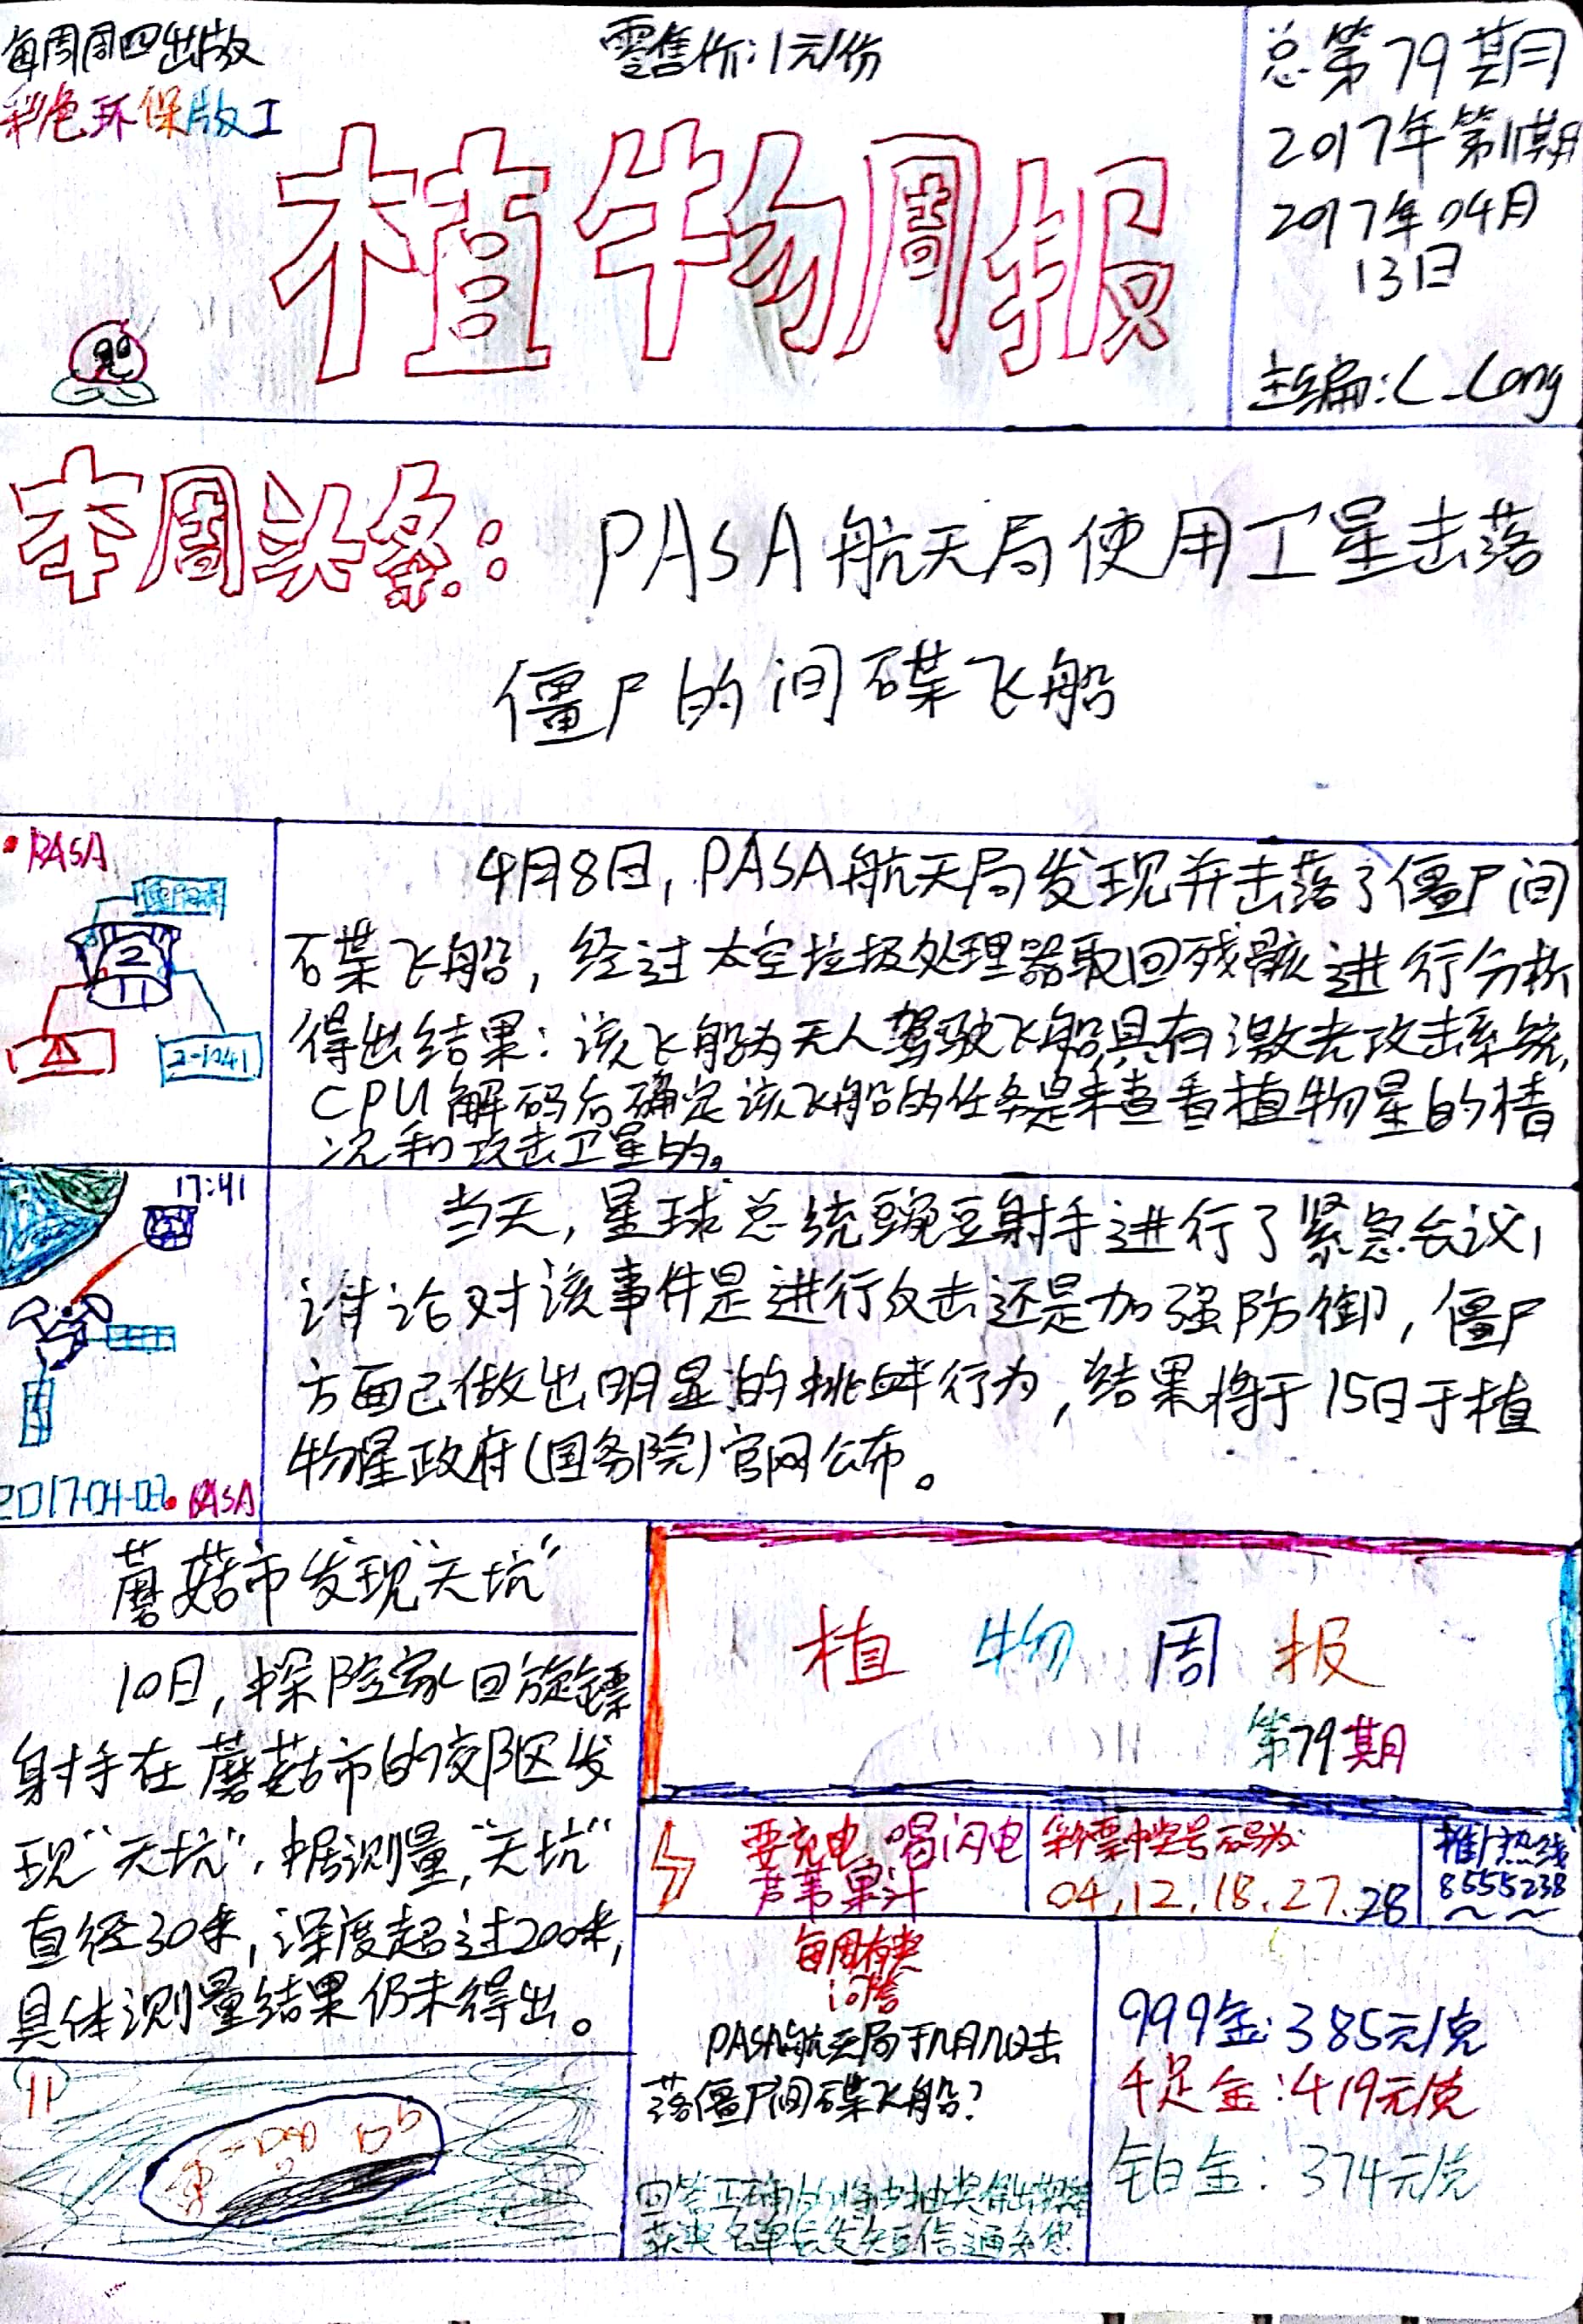 每周周四出版
零售价:1元/份
总第79期
彩色环保版I
2017年第11期
2017年04月
13日
植物周报
主编:L_Long
本周头条:PASA航天局使用卫星击落
僵尸的间碟飞船
PASA
2-1241
4月8日,PASA航天局发现并击落了僵尸间
碟飞船,经过太空垃圾处理器取回残骸进行分析
得出结果:该飞船为无人驾驶飞船,具有激光攻击系统,
CPU解码后确定该飞船的任务是来查看植物星的情
况和攻击卫星的。
17:41
当天,星球总统豌豆射手进行了紧急会议,
讨论对该事件是进行反击还是加强防御,僵尸
方面已做出明显的挑衅行为,结果将于15日于植
物星政府(国务院)官网公布。
2017-04-08 PASA
蘑菇市发现"天坑"
10日,探险家回旋镖
射手在蘑菇市的郊区发
现"天坑",据测量,"天坑"
直径30米,深度超过200米,
具体测量结果仍未得出。
植物周报
第79期
要充电 喝闪电
芦苇果汁
彩票中奖号码为
04,12,18,27,28
推广热线
8555238
每周有奖
问答
PASA航天局于几月几日击
落僵尸间碟飞船?
回答正确的将由抽奖
获奖名单会发短信通知您
999金:385元/克
千足金:419元/克
铂金:374元/克